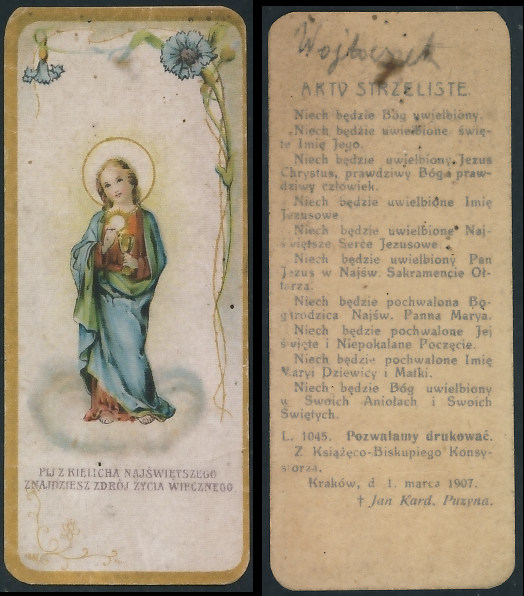 PIJ Z KIELICHA NAJŚWIĘTSZEGO
ZNAJDZIESZ ZDRÓJ ŻYCIA WIECZNEGO
AKTY STRZELISTE.
Niech będzie Bóg uwielbiony.
Niech będzie uwielbione świę-
te Imię Jego.
Niech będzie uwielbiony Jezus
Chrystus, prawdziwy Bóg a praw-
dziwy człowiek.
Niech będzie uwielbione Imię
Jezusowe
Niech będzie uwielbione Naj-
świętsze Serce Jezusowe.
Niech będzie uwielbiony Pan
Jezus w Najśw. Sakramencie Oł-
tarza.
Niech będzie pochwalona Bo-
garodzica Najśw. Panna Marya.
Niech będzie pochwalone Jej
święte i Niepokalane Poczęcie.
Niech będzie pochwalone Imię
Maryi Dziewicy i Matki.
Niech będzie Bóg uwielbiony
w Swoich Aniołach i Swoich
Świętych.
L. 1045. Pozwalamy drukować.
Z Książęco-Biskupiego Konsy-
storza.
Kraków, d 1. marca 1907.
† Jan Kard. Puzyna.